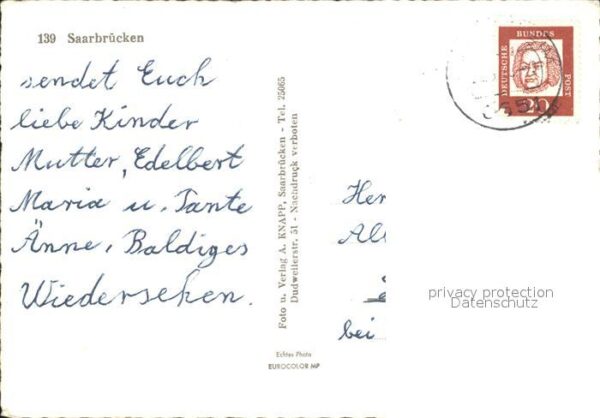 139 Saarbrücken
sendet Euch
liebe Kinder
Mutter, Edelbert
Maria u. Tante
Änne, Baldiges
Wiedersehen.
Foto u. Verlag A. KNAPP, Saarbrücken - Tel. 25065
Dudweilerstr. 51 - Nachdruck verboten
Echtes Photo
EUROCOLOR MP
DEUTSCHE BUNDES POST
20
Her
All
bei
privacy protection
Datenschutz